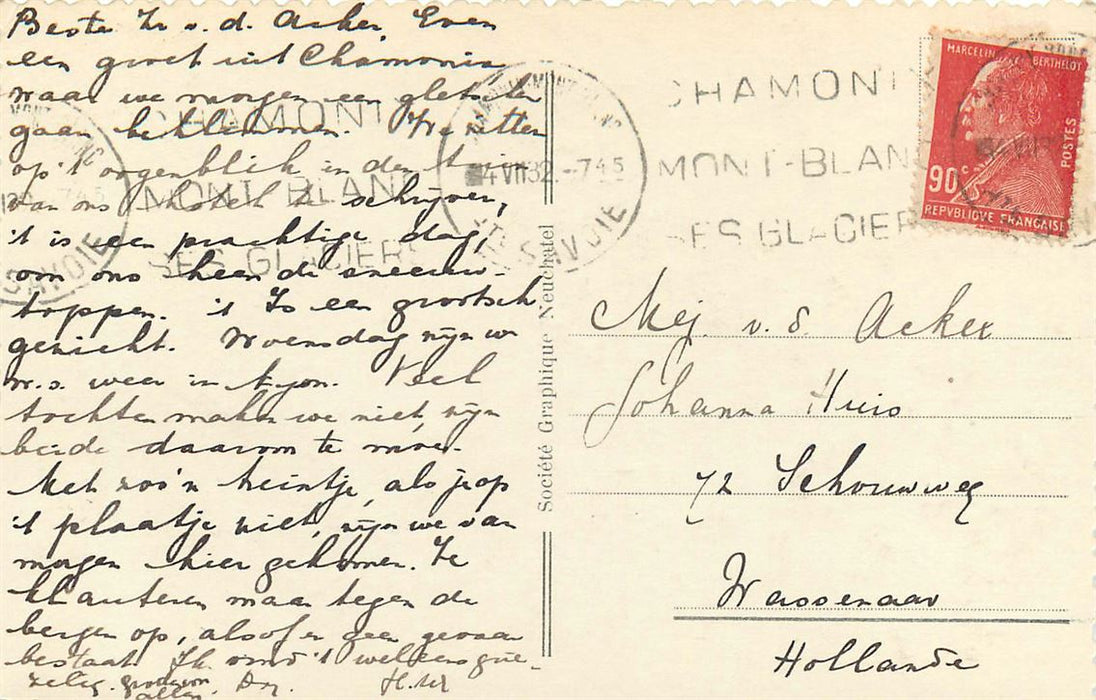 Beste Zr v. d. Acker, Even
een groet uit Chamonix
waar we morgen een gletscher
gaan beklimmen. We zitten
op 't oogenblik in den tuin
van ons hotel te schrijven,
't is een prachtige dag,
om ons heen de sneeuw-
toppen. 't Is een grootsch
gezicht. Woensdag zijn we
w.s. weer in
tochten maken we niet, zijn
beide daarom te moe.
Met zoo'n treintje, als je op
't plaatje ziet, zijn we van
morgen hier gekomen. Ze
klauteren maar tegen de
bergen op, alsof er geen gevaar
bestaat. Ik vind 't weleens grie-
zelig. groeten
allen. H.W
Société Graphique Neuchatel
CHAMONIX
MONT-BLANC
SES GLACIERS
CHAMONIX-MONT-BLANC
4 VII 32 - 7 45
SAVOIE
CHAMONIX
MONT-BLANC
SES GLACIERS
MARCELIN BERTHELOT
POSTES
90c
REPVBLIQVE FRANÇAISE
Mej. v. d. Acker
Johanna Huis
72 Schouwweg
Wassenaar
Hollande